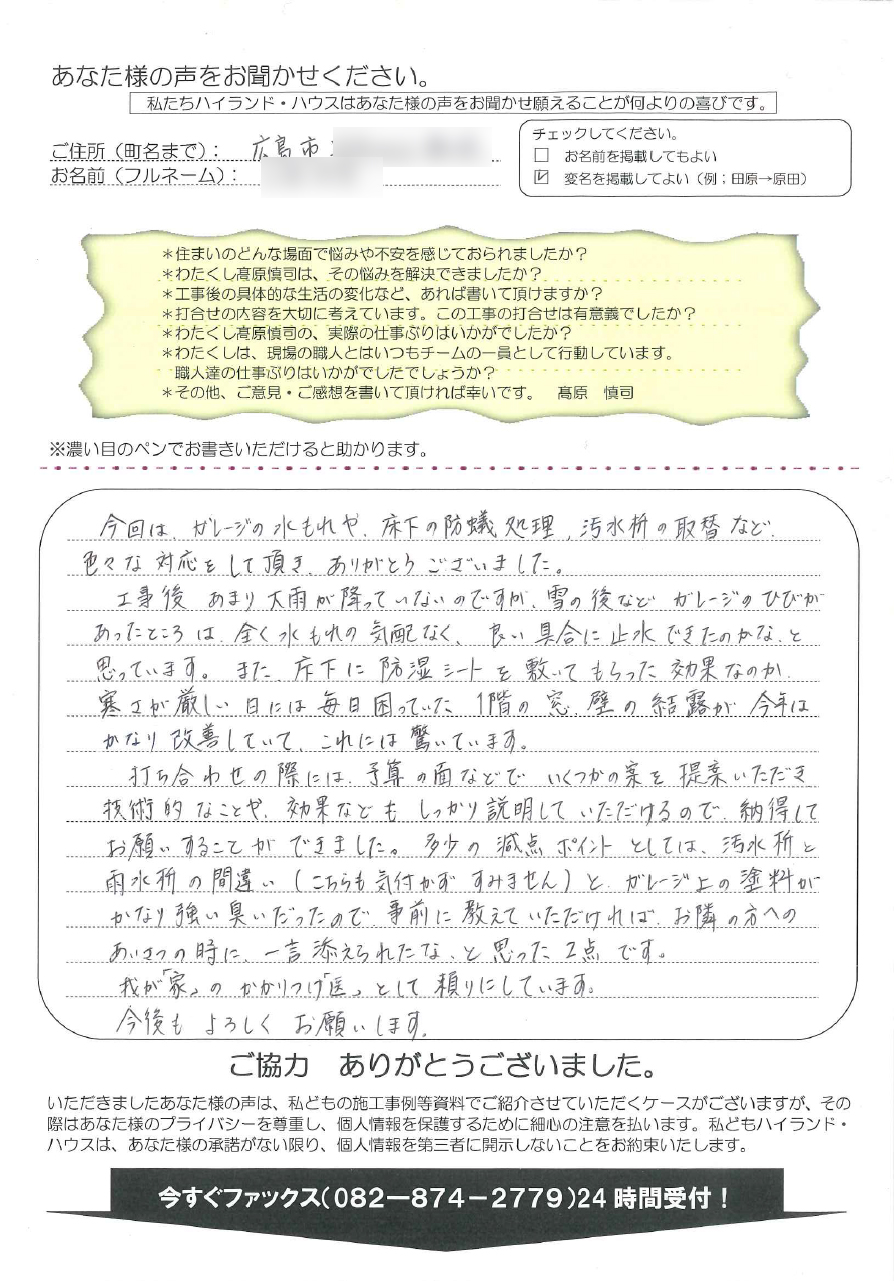 あなた様の声をお聞かせください。
私たちハイランド・ハウスはあなた様の声をお聞かせ願えることが何よりの喜びです。
ご住所（町名まで）： 広島市
お名前（フルネーム）：
チェックしてください。
□ お名前を掲載してもよい
☑ 変名を掲載してよい（例；田原→原田）
＊住まいのどんな場面で悩みや不安を感じておられましたか？
＊わたくし髙原慎司は、その悩みを解決できましたか？
＊工事後の具体的な生活の変化など、あれば書いて頂けますか？
＊打合せの内容を大切に考えています。この工事の打合せは有意義でしたか？
＊わたくし髙原慎司の、実際の仕事ぶりはいかがでしたか？
＊わたくしは、現場の職人とはいつもチームの一員として行動しています。
職人達の仕事ぶりはいかがでしたでしょうか？
＊その他、ご意見・ご感想を書いて頂ければ幸いです。 髙原 慎司
※濃い目のペンでお書きいただけると助かります。
今回は、ガレージの水もれや、床下の防蟻処理、汚水桝の取替など、
色々な対応をして頂き、ありがとうございました。
工事後 あまり大雨が降っていないのですが、雪の後など ガレージのひびが
あったところは、全く水もれの気配なく、良い具合に止水できたのかな、と
思っています。また、床下に防湿シートを敷いてもらった効果なのか、
寒さが厳しい日には毎日困っていた 1階の窓、壁の結露が 今年は
かなり改善していて、これには驚いています。
打ち合わせの際には、予算の面などで いくつかの案を提案いただき
技術的なことや、効果などもしっかり説明していただけるので、納得して
お願いすることができました。多少の減点ポイントとしては、汚水桝と
雨水桝の間違い（こちらも気付かずすみません）と、ガレージ上の塗料が
かなり強い臭いだったので、事前に教えていただければ、お隣の方への
あいさつの時に、一言添えられたな、と思った2点です。
我が「家」のかかりつけ「医」として頼りにしています。
今後もよろしくお願いします。
ご協力 ありがとうございました。
いただきましたあなた様の声は、私どもの施工事例等資料でご紹介させていただくケースがございますが、その
際はあなた様のプライバシーを尊重し、個人情報を保護するために細心の注意を払います。私どもハイランド・
ハウスは、あなた様の承諾がない限り、個人情報を第三者に開示しないことをお約束いたします。
今すぐファックス（082－874－2779）24時間受付！